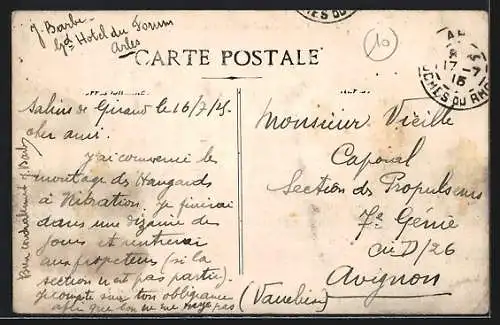 J. Barbe
Gd Hotel du Forum
Arles
CARTE POSTALE
10
CHES DU RHO
AR
17 - 7
15
CHES DU RHO
Salins de Giraud le 16/7/15
cher ami.
J'ai commencé le
montage des Hangards
à Vibration. Je finirai
dans une dizaine de
jours et rentrerai
aux projecteurs (si la
section n'est pas partie).
Je compte sur ton obligeance
afin que l'on ne me raye pas
Bien cordialement J. Barbe
Monsieur Vieille
Caporal
Section des Propulseurs
7e Génie
Cie D/26
Avignon
(Vaucluse)